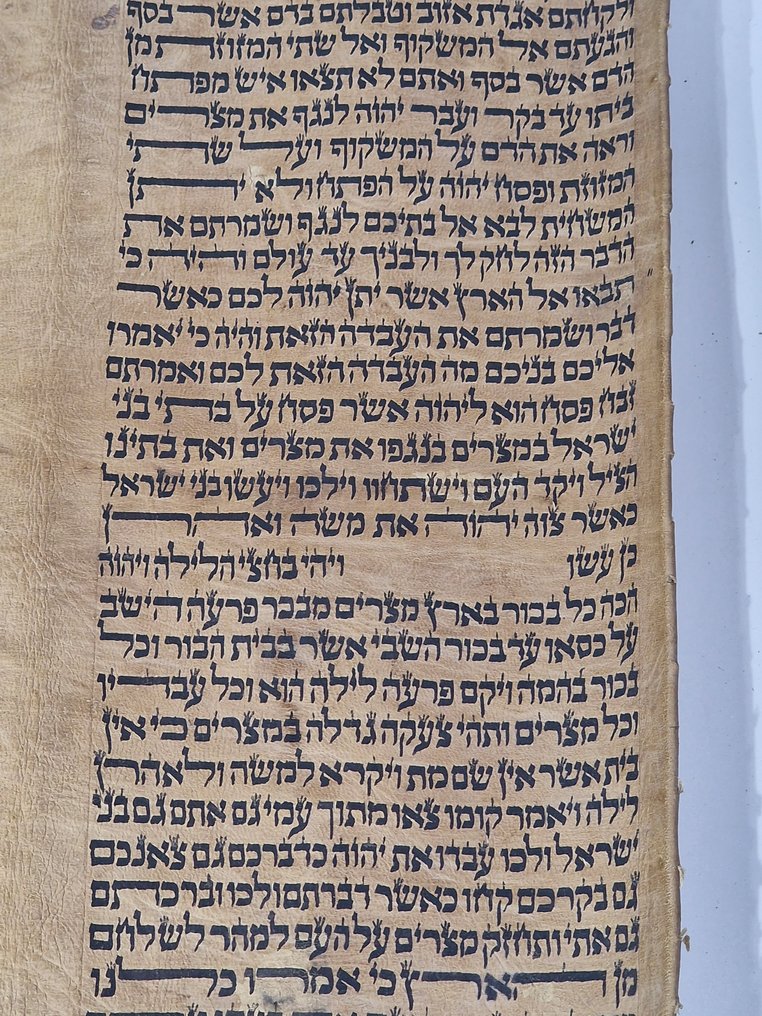 ולקחתם אגדת אזוב וטבלתם בדם אשר בסף
והגעתם אל המשקוף ואל שתי המזוזת מן
הדם אשר בסף ואתם לא תצאו איש מפתח
ביתו עד בקר ועבר יהוה לנגף את מצרים
וראה את הדם על המשקוף ועל שתי
המזוזת ופסח יהוה על הפתח ולא יתן
המשחית לבא אל בתיכם לנגף ושמרתם את
הדבר הזה לחק לך ולבניך עד עולם והיה כי
תבאו אל הארץ אשר יתן יהוה לכם כאשר
דבר ושמרתם את העבדה הזאת והיה כי יאמרו
אליכם בניכם מה העבדה הזאת לכם ואמרתם
זבח פסח הוא ליהוה אשר פסח על בתי בני
ישראל במצרים בנגפו את מצרים ואת בתינו
הציל ויקד העם וישתחוו וילכו ויעשו בני ישראל
כאשר צוה יהוה את משה ואהרן
כן עשו ויהי בחצי הלילה ויהוה
הכה כל בכור בארץ מצרים מבכר פרעה הישב
על כסאו עד בכור השבי אשר בבית הבור וכל
בכור בהמה ויקם פרעה לילה הוא וכל עבדיו
וכל מצרים ותהי צעקה גדלה במצרים כי אין
בית אשר אין שם מת ויקרא למשה ולאהרן
לילה ויאמר קומו צאו מתוך עמי גם אתם גם בני
ישראל ולכו עבדו את יהוה כדברכם גם צאנכם
גם בקרכם קחו כאשר דברתם ולכו וברכתם
גם אתי ותחזק מצרים על העם למהר לשלחם
מן הארץ כי אמרו כלנו